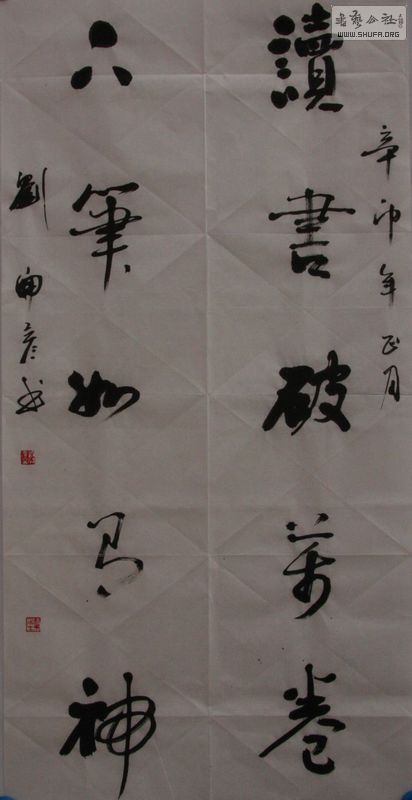 書藝公社
WWW.SHUFA.ORG
辛卯年正月
讀書破萬卷
下筆如有神
劉彦书